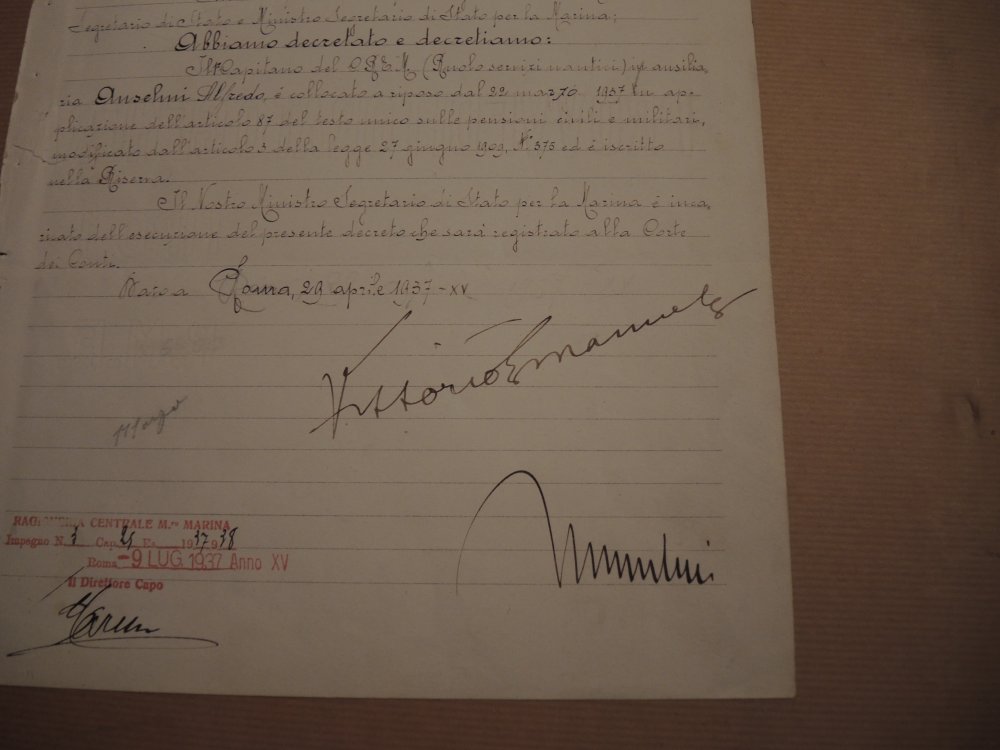 Segretario di Stato e Ministro Segretario di Stato per la Marina;
Abbiamo decretato e decretiamo:
Il Capitano del C.R.E.M. (Ruolo servizi nautici) in ausilia,
ria Anselmi Alfredo, é collocato a riposo dal 22 marzo 1937 in ap-
plicazione dell'articolo 87 del testo unico sulle pensioni civili e militari,
modificato dall'articolo 3 della legge 27 giugno 1909, N. 375 ed é iscritto
nella Riserva.
Il Nostro Ministro Segretario di Stato per la Marina é inca,
ricato dell'esecuzione del presente decreto che sará registrato alla Corte
dei Conti.
Roma, 29 aprile 1937-XV
Vittorio Emanuele
Mussolini
RAGIONERIA CENTRALE M.ro MARINA
Impegno N. 3 Cap. 21 Es. 1937 938
Roma -9 LUG. 1937 Anno XV
Il Direttore Capo